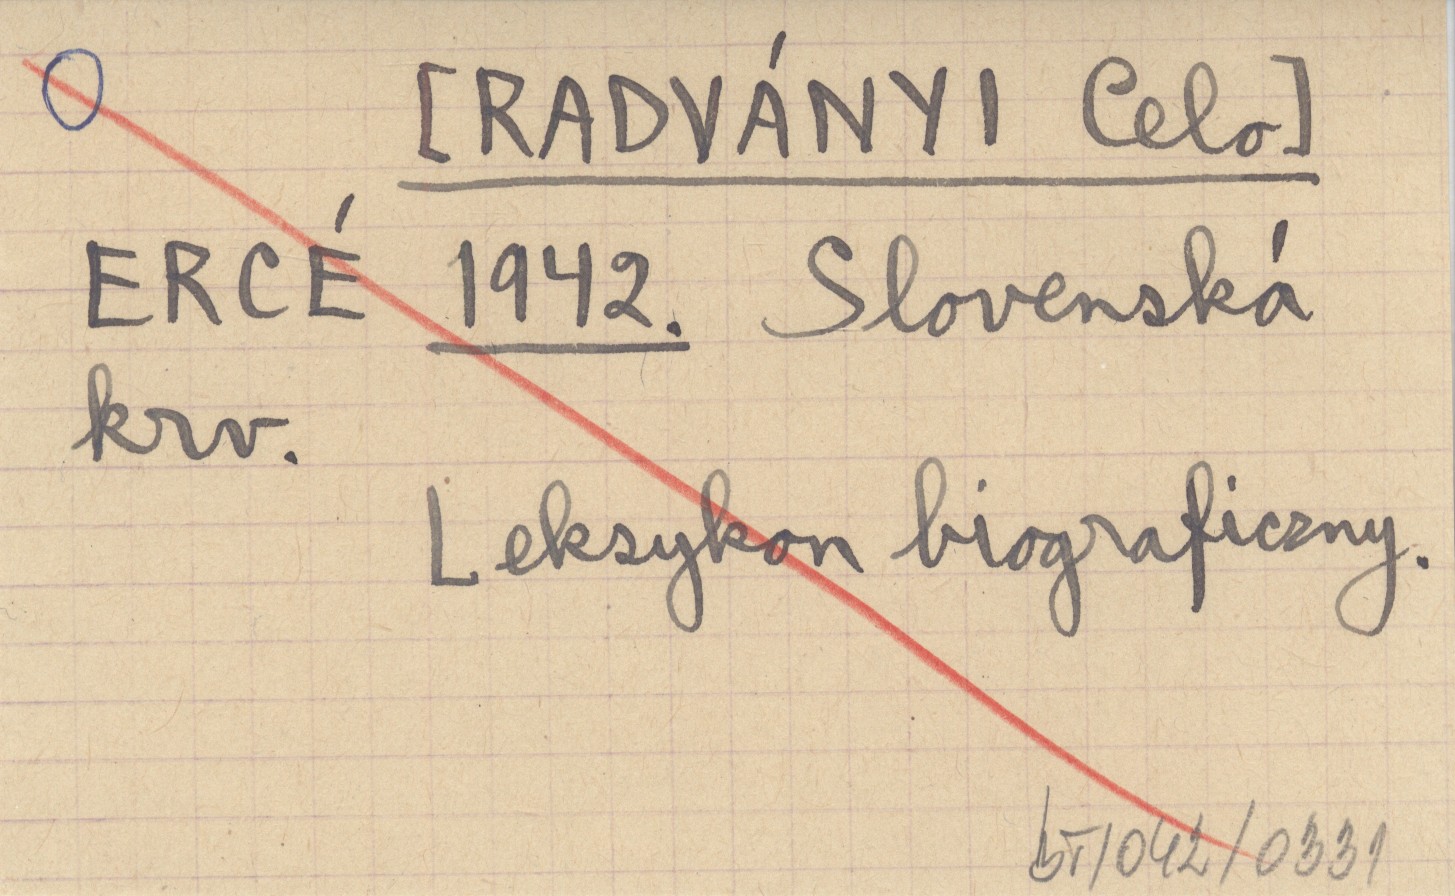 [RADVÁNYI Celo]
ERCÉ 1942. Slovenská
krv.
Leksykon biograficzny.
bT/042/0331